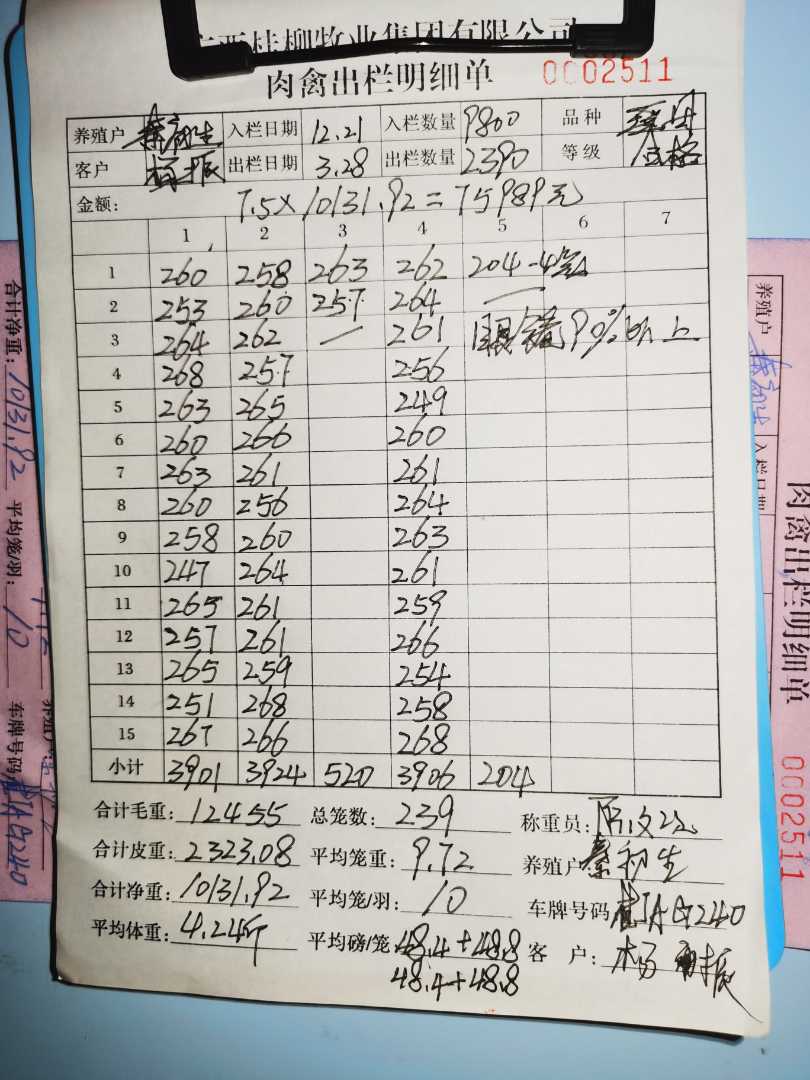 广西桂柳牧业集团有限公司
肉禽出栏明细单 0002511
养殖户 入栏日期 12.21 入栏数量 9800 品种
客户 杨振 出栏日期 3.28 出栏数量 2390 等级 合格
金额: 7.5×10131.92=75989元
1 2 3 4 5 6 7
1 260 258 263 262 204-4笼
2 253 260 257 264 —
3 264 262 / 261 90%以上
4 268 257 256
5 263 265 249
6 260 266 260
7 263 261 261
8 260 256 264
9 258 260 263
10 247 264 261
11 265 261 259
12 257 261 266
13 265 259 254
14 251 268 258
15 267 266 268
小计 3901 3924 520 3906 204
合计毛重: 12455 总笼数: 239 称重员:
合计皮重: 2323.08 平均笼重: 9.72 养殖户 秦初生
合计净重: 10131.92 平均笼/羽: 10 车牌号码
平均体重: 4.24斤 平均磅/笼: 48.4+48.8 客 户: 杨振
48.4+48.8
合计净重: 10131.92 平均笼/羽: 10 车牌号码
养殖户 入栏日期
肉禽出栏明细单 0002511